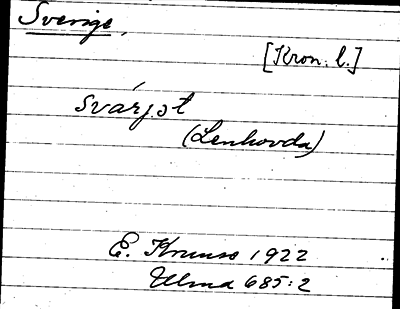 Sverige,
[Kron. l.]
svárjət
(Lenhovda)
E. Kruuse 1922
Ulma 685:2